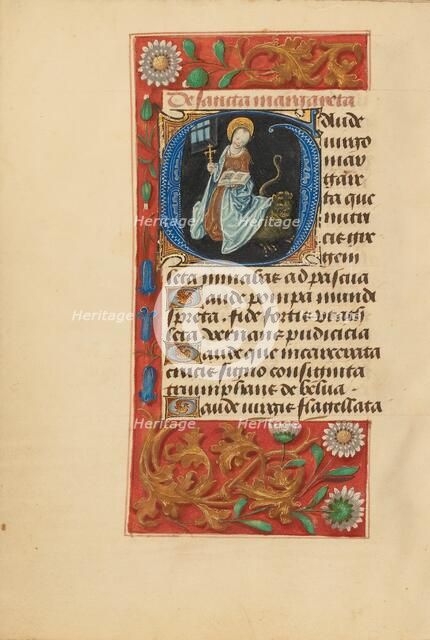 De sancta margareta
aude
virgo
mar
gare
ta que
nutri
cie gre
gem
leta minabas ad pascua
Gaude pompa mundi
spreta. fide fortis
leta pudicicia
Gaude que incarcerata
crucis signo consignita
triumphans de belua.
Gaude virgo flagellata
Heritage
Heritage
Heritage
Heritage
Heritage
Heritage